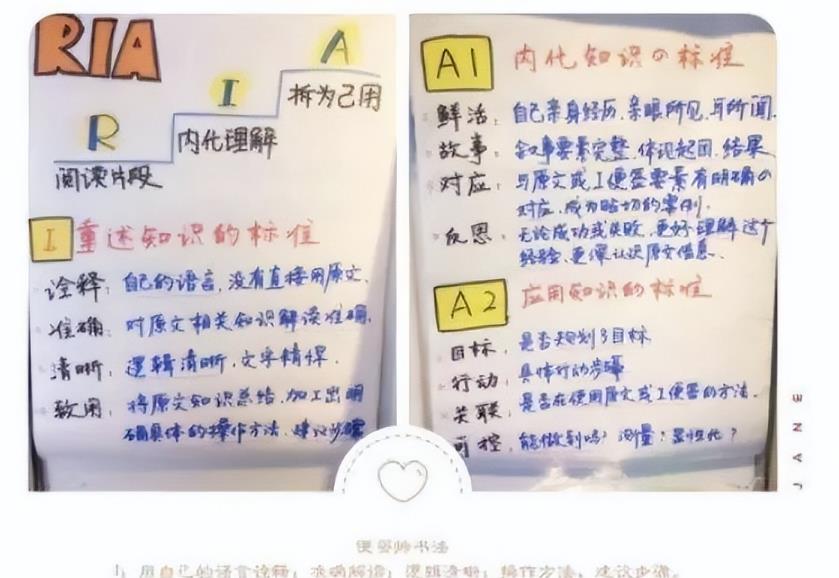 RIA
A
I
拆为己用
R
内化理解
阅读片段
I 重述知识的标准
诠释: 自己的语言,没有直接用原文.
准确: 对原文相关知识解读准确.
清晰: 逻辑清晰,文字精悍.
致用: 将原文知识总结.加工出明
确具体的操作方法、建议步骤
A1 内化知识の标准
鲜活: 自己亲身经历,亲眼所见,耳所闻.
故事: 叙事要素完整,体现起因、结果
对应: 与原文或I便签要素有明确の
对应.成为贴切的案例.
反思: 无论成功或失败.更好理解这个
经验.更深认识原文信息.
A2 应用知识的标准
目标, 是否规划了目标
行动: 具体行动步骤
关联: 是否在使用原文或I便签的方法.
可控, 能做到吗? 测量?显性化?
JANE
便签师书法
1、用自己的语言诠释;准确解读;逻辑清晰;操作方法、建议步骤。